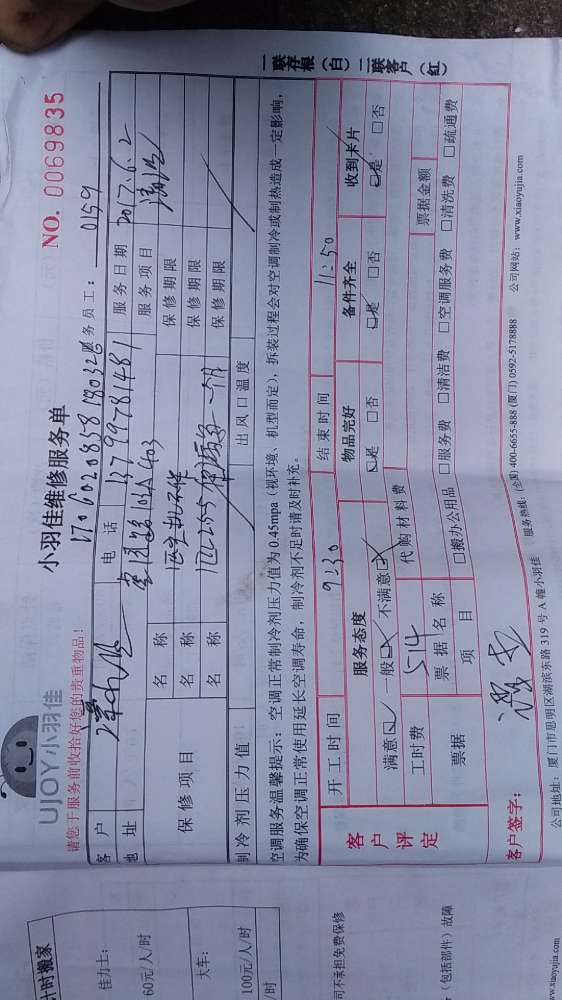 UJOY小羽佳
小羽佳维修服务单
NO. 0069835
请您于服务前收拾好您的贵重物品!
170602085818032 务员工: 0159
客户 电话 13799781481 服务日期 2017.6.2
地址 403 服务项目 清洗
保修项目 名称 保修期限
名称 保修期限
名称 一个月 保修期限
制冷剂压力值 出风口温度
空调服务温馨提示: 空调正常制冷剂压力值为0.45mpa(视环境、机型而定), 拆装过程会对空调制冷或制热造成一定影响,
为确保空调正常使用延长空调寿命, 制冷剂不足时请及时补充。
一联存根(白) 二联客户(红)
开工时间 9:30 结束时间 11:50
客户评定
服务态度 物品完好 备件齐全 收到卡片
满意 一般 不满意 是 否 是 否 是 否
工时费 514 代购材料费
票据 票据名称 票据金额
项目 搬办公用品 服务费 清洁费 空调服务费 清洗费 疏通费
客户签字:
公司地址: 厦门市思明区湖滨东路319号A幢小羽佳 服务热线: (全国) 400-6655-888 (厦门) 0592-5178888 公司网站: www.xiaoyujia.com
计时搬家
佳力士:
60元/人/时
大车:
100元/人/时
/时
司不承担免费保修
(包括部件) 故障
www.xiaoyujia.com